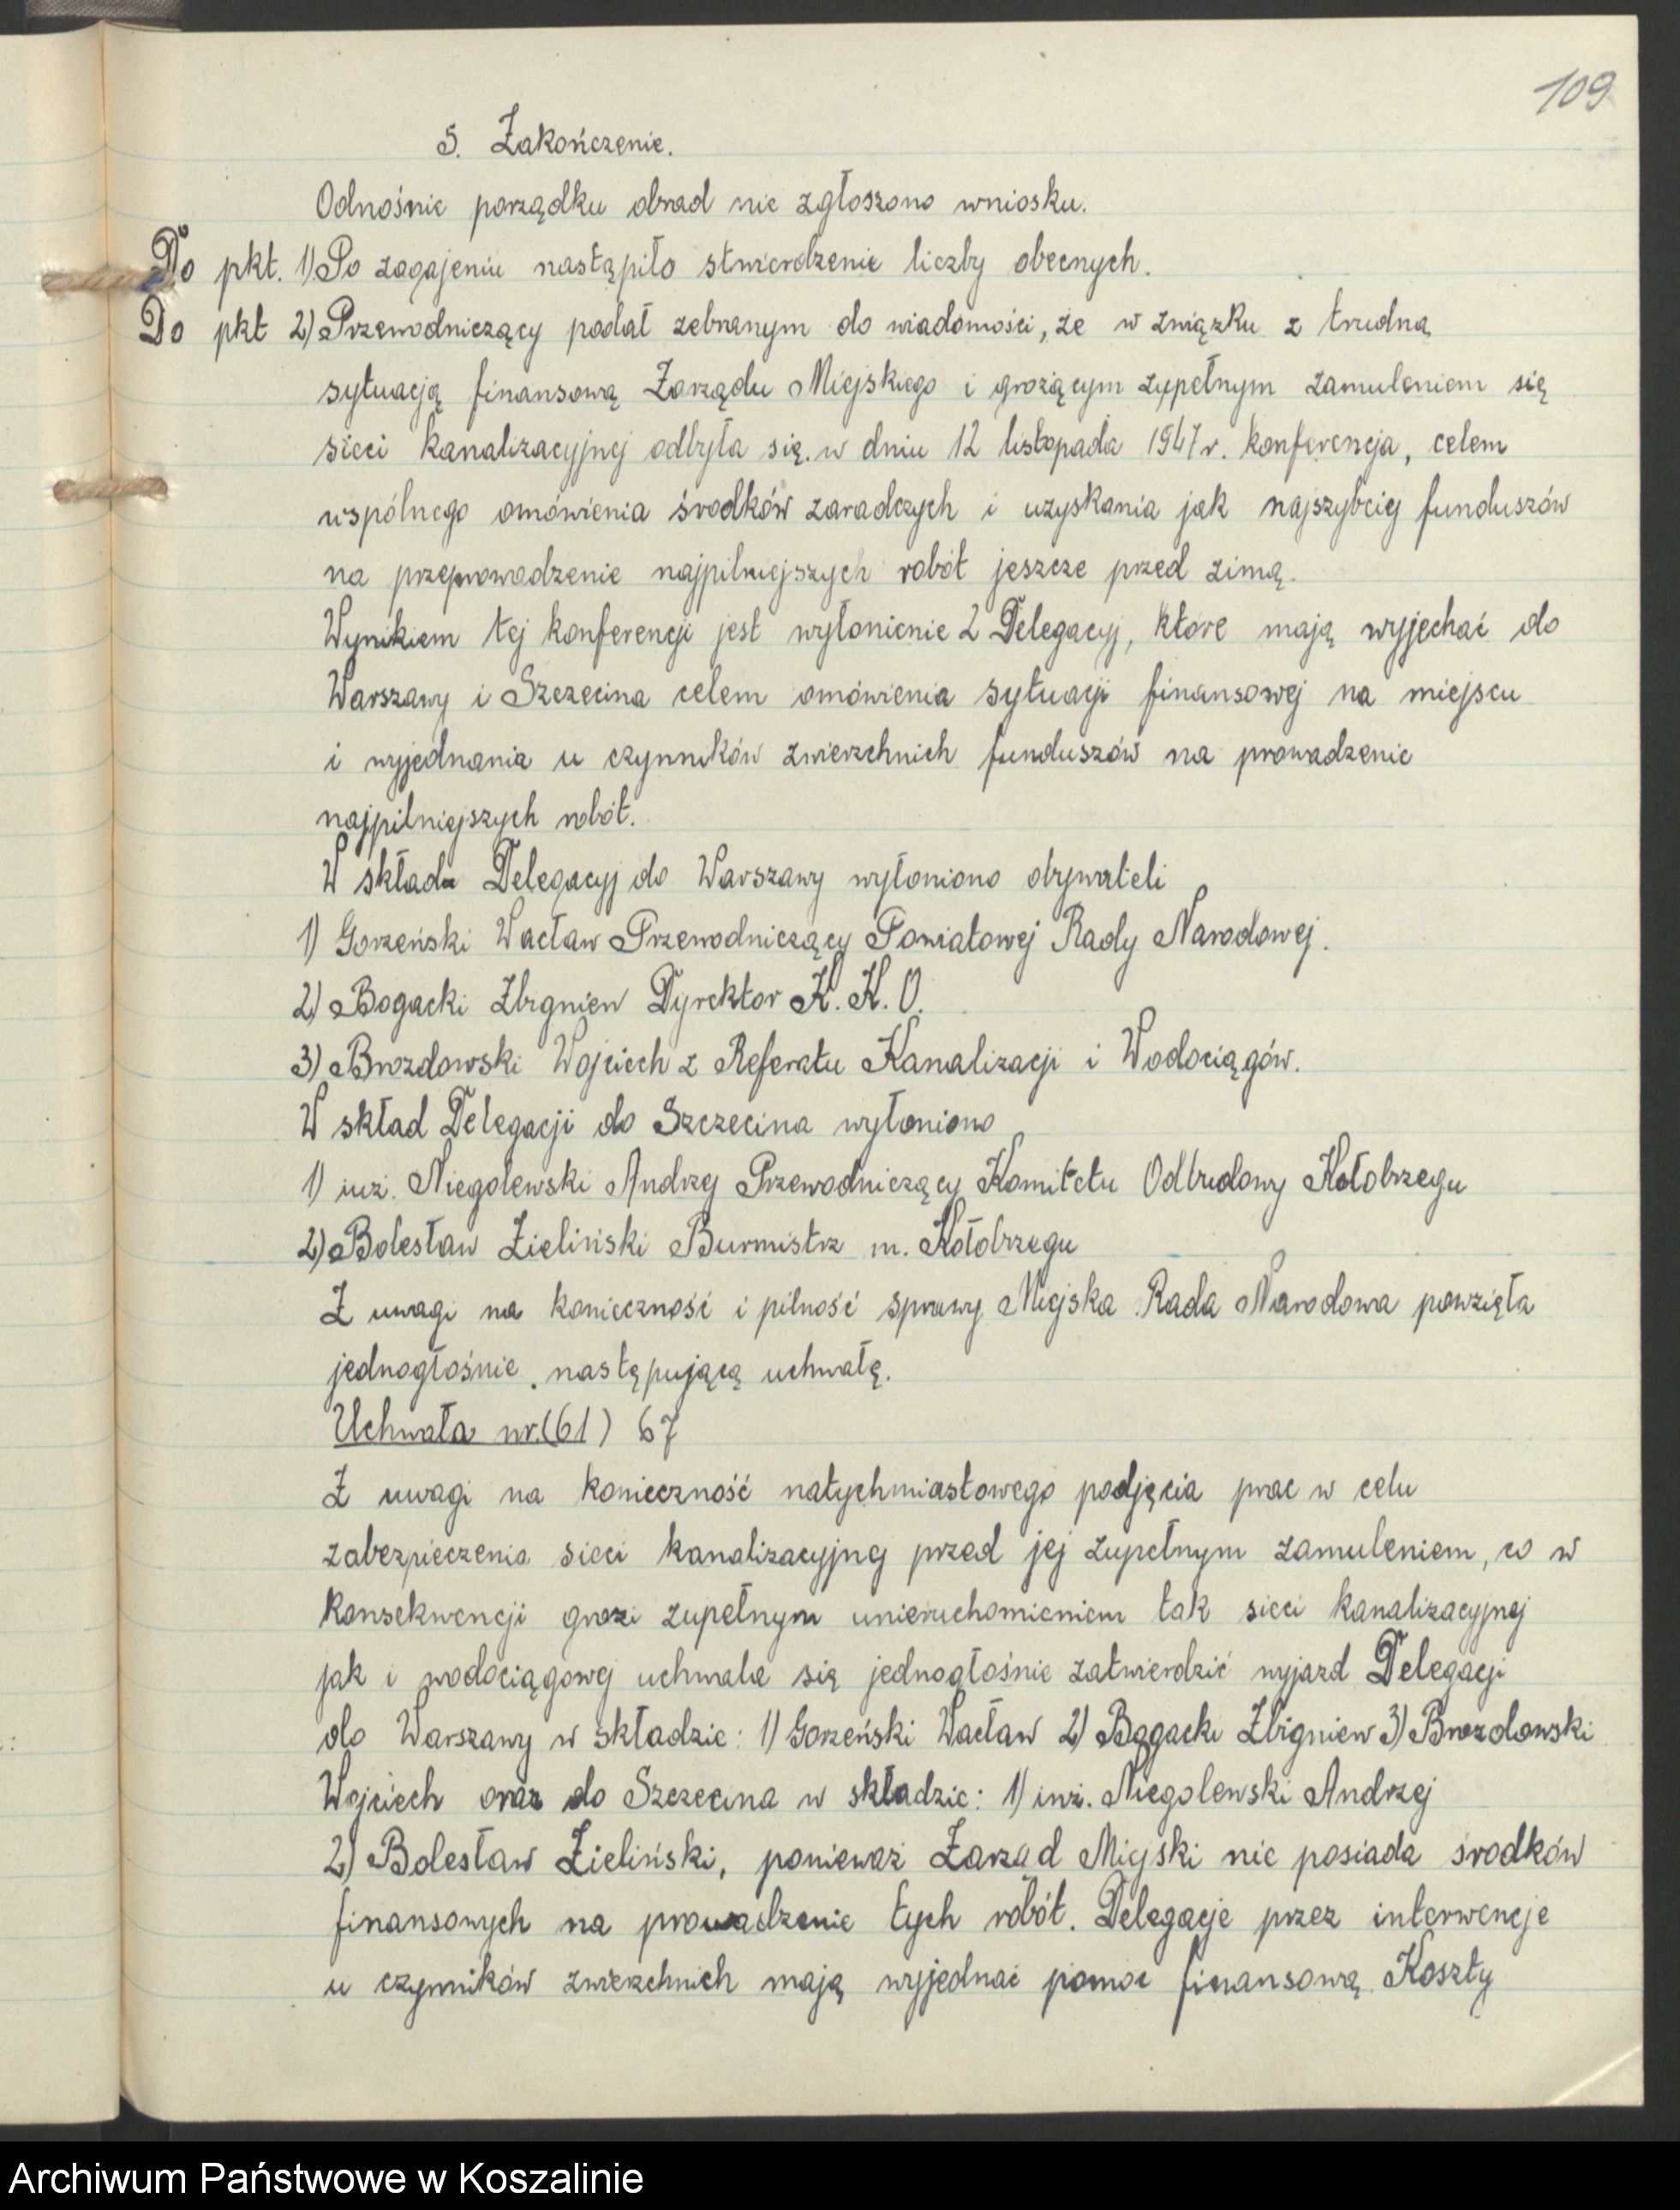 109
5. Zakończenie.
Odnośnie porządku obrad nie zgłoszono wniosku.
Do pkt. 1) Po zagajeniu nastąpiło stwierdzenie liczby obecnych.
Do pkt 2) Przewodniczący podał zebranym do wiadomości, że w związku z trudną
sytuacją finansową Zarządu Miejskiego i grożącym zupełnym zamuleniem się
sieci kanalizacyjnej odbyła się w dniu 12 listopada 1947 r. konferencja, celem
wspólnego omówienia środków zaradczych i uzyskania jak najszybciej funduszów
na przeprowadzenie najpilniejszych robót jeszcze przed zimą.
Wynikiem tej konferencji jest wyłonienie 2 Delegacyj, które mają wyjechać do
Warszawy i Szczecina celem omówienia sytuacji finansowej na miejscu
i wyjednania u czynników zwierzchnich funduszów na prowadzenie
najpilniejszych robót.
W składu Delegacyj do Warszawy wyłoniono obywateli
1) Gorzeński Wacław Przewodniczący Powiatowej Rady Narodowej.
2) Bogacki Zbigniew Dyrektor K. K. O.
3) Brozdowski Wojciech z Referatu Kanalizacji i Wodociągów.
W skład Delegacji do Szczecina wyłoniono
1) inż. Niegolewski Andrzej Przewodniczący Komitetu Odbudowy Kołobrzegu
2) Bolesław Zieliński Burmistrz m. Kołobrzegu
Z uwagi na konieczność i pilność sprawy Miejska Rada Narodowa powzięła
jednogłośnie następującą uchwałę.
Uchwała nr. (61) 67
Z uwagi na konieczność natychmiastowego podjęcia prac w celu
zabezpieczenia sieci kanalizacyjnej przed jej zupełnym zamuleniem, co w
konsekwencji grozi zupełnym unieruchomieniem tak sieci kanalizacyjnej
jak i wodociągowej uchwala się jednogłośnie zatwierdzić wyjazd Delegacji
do Warszawy w składzie: 1) Gorzeński Wacław 2) Bogacki Zbigniew 3) Brozdowski
Wojciech oraz do Szczecina w składzie: 1) inż. Niegolewski Andrzej
2) Bolesław Zieliński, ponieważ Zarząd Miejski nie posiada środków
finansowych na prowadzenie tych robót. Delegacje przez interwencje
u czynników zwierzchnich mają wyjednać pomoc finansową. Koszty
Archiwum Państwowe w Koszalinie